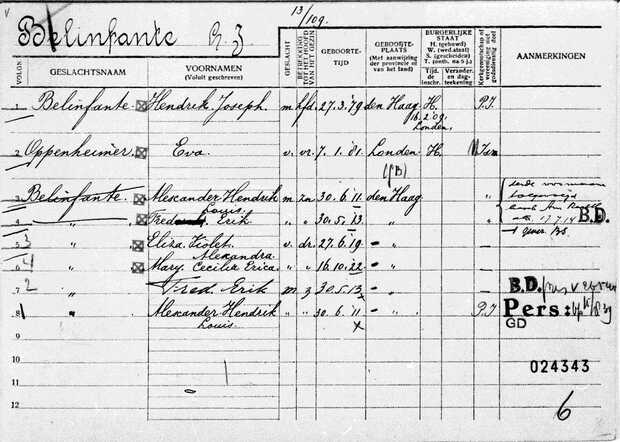 13/109.
Belinfante
VOLGN.
GESLACHTSNAAM
VOORNAMEN
(Voluit geschreven)
GESLACHT
BETREKKING TOT HET HOOFD VAN HET GEZIN
GEBOORTE-
TIJD
GEBOORTE-
PLAATS
(Met aanwijzing der provincie of van het land)
BURGERLIJKE
STAAT
H. (gehuwd)
W. (wed.staat)
S. (gescheiden)
T. (ontb. na S.)
Tijd. de inschr.
Verander. en dag-teekening
Kerkgenootsch. of vereeniging niet godsdienstig doel
AANMERKINGEN
1 Belinfante. Hendrik Joseph. m hfd. 27.3.79 den Haag H. P.I.
16.2.'09.
Londen.
2 Oppenheimer. Eva. v. vr. 7.1.81. Londen H.
(GB)
3 Belinfante. Alexander Hendrik m zn 30.6.11 den Haag „
Louis.
4 „ Fred Erik „ „ 30.5.13. „ „
17.7.14 B.D.
5 3 „ Eliza Violet. v. dr. 27.6.19 — „ —
Alexandra.
6 4 „ Mary Cecilia Erica „ „ 16.10.22 — „ —
7 2 „ Fred Erik m z 30.5.13 — „ —
B.D.
8 1 „ Alexander Hendrik „ „ 30.6.11 — „ P.I
Louis. x
Pers:
GD
9
10
024343
11
12
6